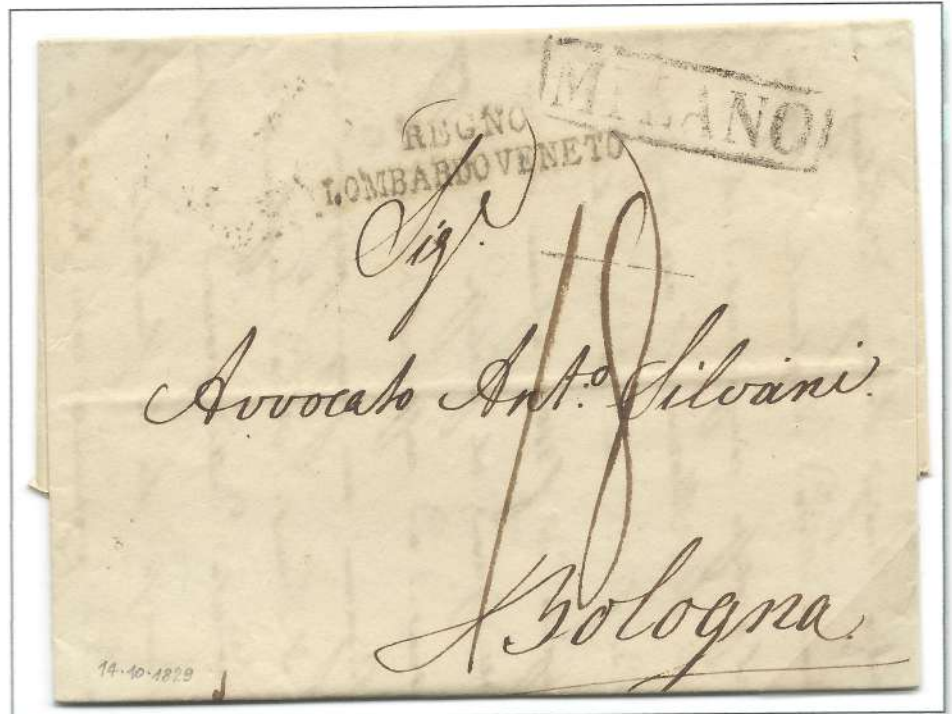 MILANO
REGNO
LOMBARDO VENETO
Sig.r
18
Avvocato Ant.o Silvani.
Bologna.
14.10.1829